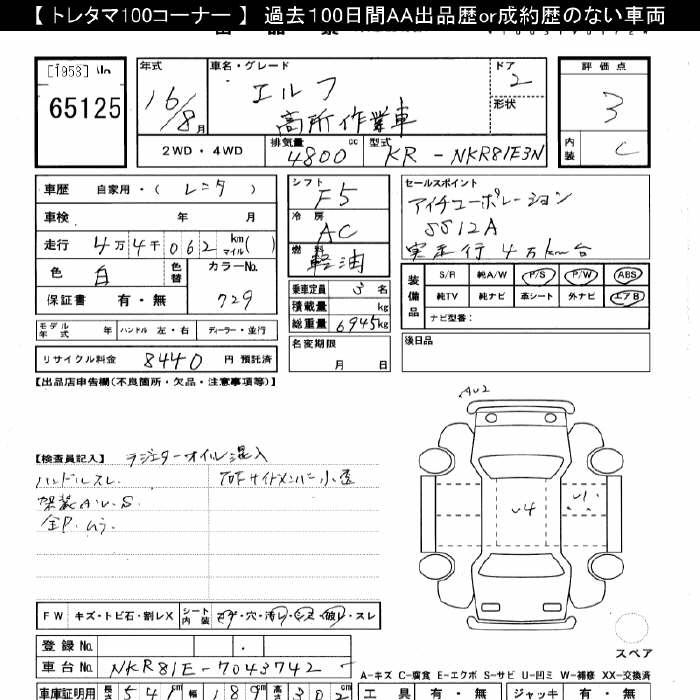 【トレタマ100コーナー】 過去100日間AA出品歴or成約歴のない車両
[1953] No
65125
年式
16/8月
車名・グレード
エルフ
高所作業車
ドア
2
形状
評価点
3
内装
C
2WD・4WD
排気量
4800 cc
型式
KR-NKR81E3N
車歴 自家用・( レンタ )
車検 年 月
走行 4万4千062 km マイル( )
色 白 色替
カラーNo.
729
保証書 有・無
シフト
F5
冷房
AC
燃料
軽油
乗車定員 3名
積載量 kg
総重量 6945kg
名変期限
月 日
セールスポイント
アイチコーポレーション
SS12A
実走行 4万km台
装備品
S/R 純A/W P/S P/W ABS
純TV 純ナビ 革シート 外ナビ エアB
ナビ型番:
後日品
モデル年式 年 ハンドル 左・右 ディーラー・並行
リサイクル料金 8440 円 預託済
【出品店申告欄(不良箇所・欠品・注意事項等)】
【検査員記入】 ラジエターオイル混入
ハンドルスレ
架装A.U.S
全P.ムラ
AU2
U4
U1
FW キズ・トビ石・割レX シート内装 コゲ・穴・汚レ・シミ・破レ・スレ
スペア
登録No.
車台No. NKR81E-7043742
A-キズ C-腐食 E-エクボ S-サビ U-凹ミ W-補修 XX-交換済
車庫証明用 長さ 541 cm 189 高さ 302
工具 有・無 ジャッキ 有・無